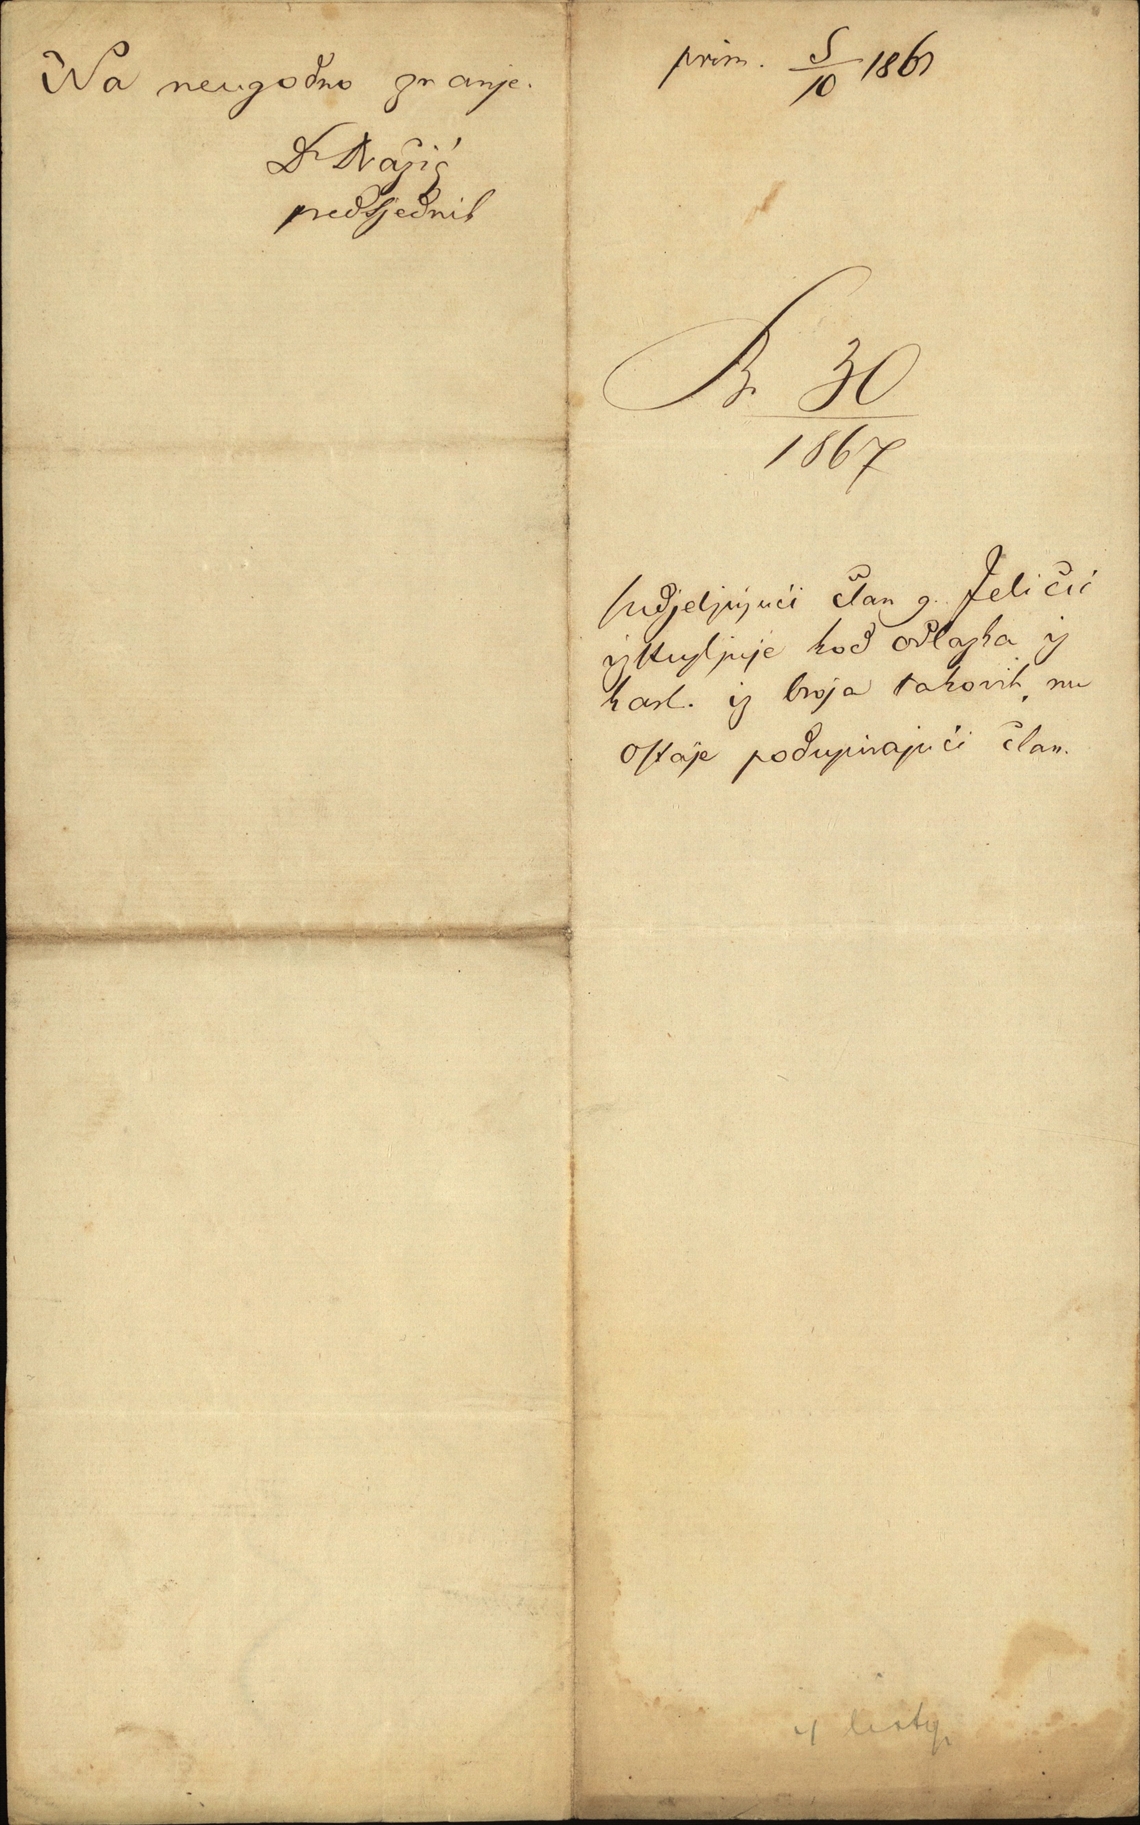 Na neugodno znanje.
Dr
predsjednik
prim. 5/10 1867
Br 30
1867
Sudjelujući član g. Jeličić
iztupljuje kod odlazka iz
karl. iz broja takovih, nu
ostaje podupirajući član.
4 listy